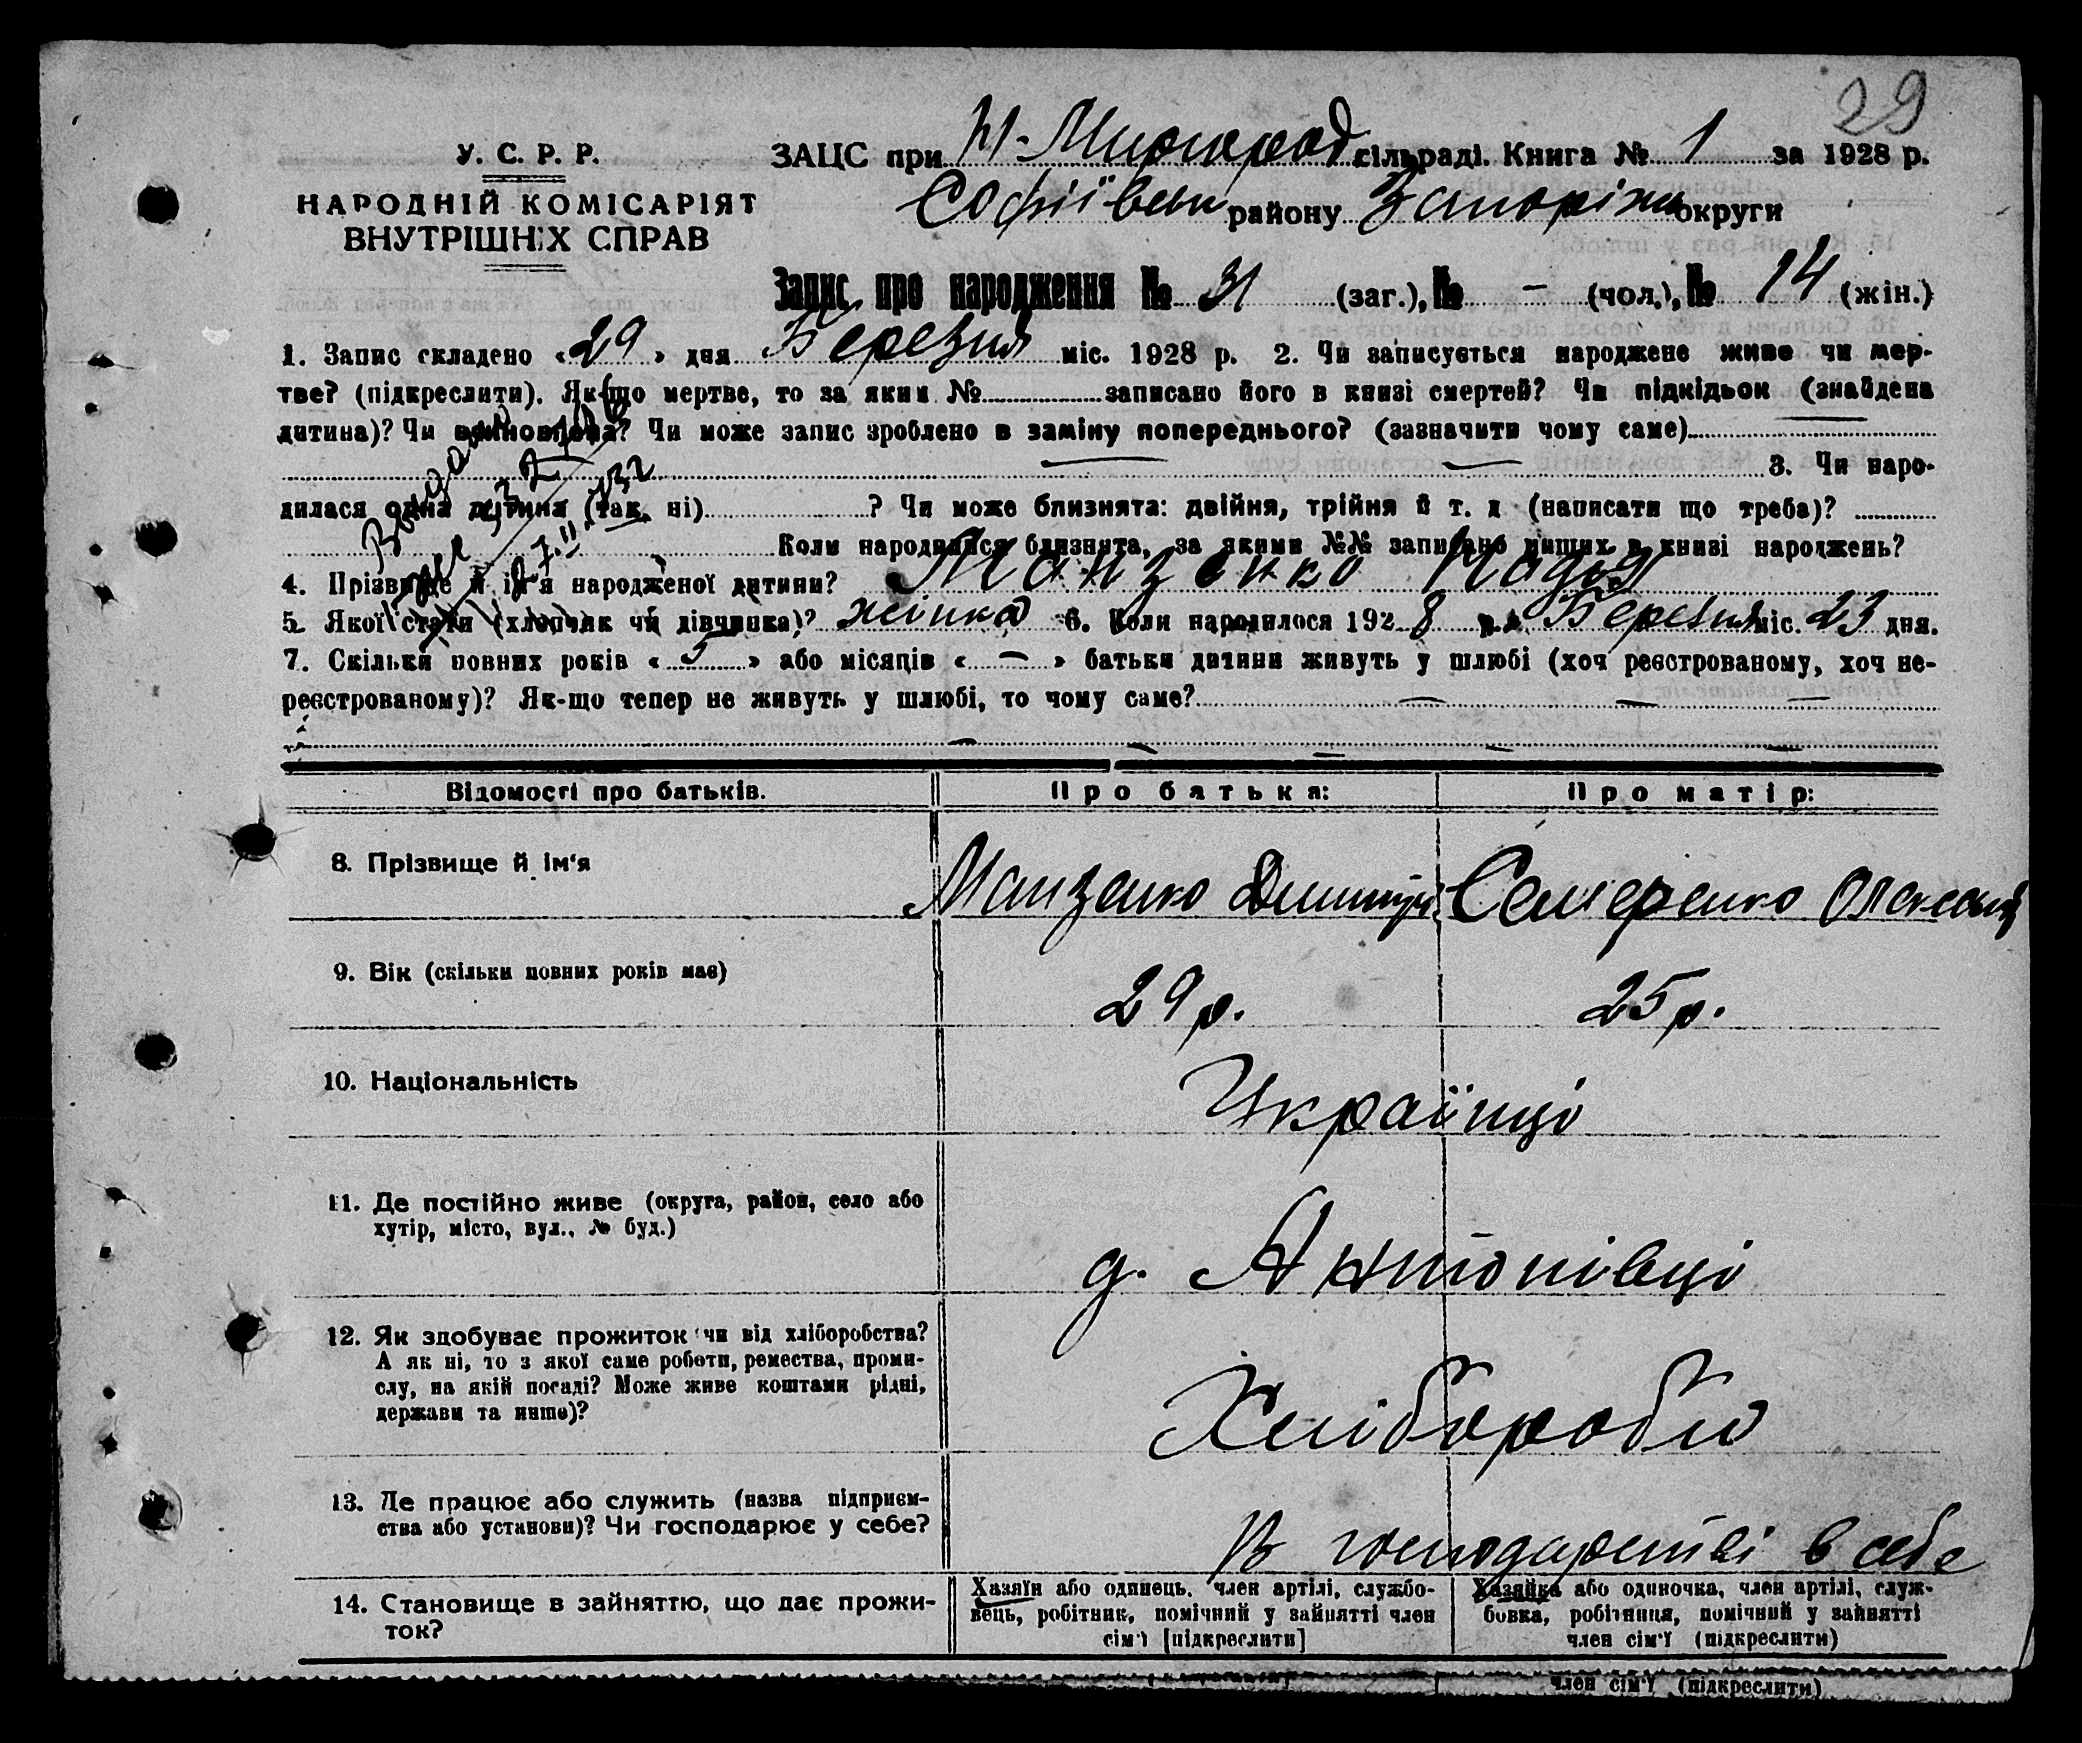 29
У. С. Р. Р.
НАРОДНІЙ КОМІСАРІЯТ
ВНУТРІШНІХ СПРАВ
ЗАЦС при Н-Миргород сільраді. Книга № 1 за 1928 р.
Софіївськ району Запоріжж округи
Запис про народження № 31 (заг.), № - (чол.), № 14 (жін.)
1. Запис складено «29» дня Березня міс. 1928 р. 2. Чи записується народжене живе чи мер-
тве? (підкреслити). Як-що мертве, то за яким № записано його в книзі смертей? Чи підкідьок (знайдена
дитина)? Чи Чи може запис зроблено в заміну попереднього? (зазначити чому саме) —
— — 3. Чи наро-
дилася одна дитина (так, ні) ? Чи може близнята: двійня, трійня й т. д (написати що треба)?
Коли народилися близнята, за якими №№ записано инших в книзі народжень?
4. Прізвище й ім'я народженої дитини? Манзенко Надія
5. Якої статі (хлопчик чи дівчинка)? жінка 6. Коли народилося 1928 р. Березня міс. 23 дня.
7. Скільки повних років «5» або місяців «—» батьки дитини живуть у шлюбі (хоч реєстрованому, хоч не-
реєстрованому)? Як-що тепер не живуть у шлюбі, то чому саме? — — —
— — — — —
Відомості про батьків. Про батька: Про матір:
8. Прізвище й ім'я Манзенко Дмитро Семеренко
9. Вік (скільки повних років має) 29 р. 25 р.
10. Національність Українці
11. Де постійно живе (округа, район, село або
хутір, місто, вул., № буд.) д. Антонівці
12. Як здобуває прожиток чи від хліборобства?
А як ні, то з якої саме роботи, ремества, проми-
слу, на якій посаді? Може живе коштами рідні,
держави та инше)? Хлібороби
13. Де працює або служить (назва підприєм-
ства або установи)? Чи господарює у себе? В господарстві в себе
14. Становище в зайняттю, що дає прожи-
ток?
Хазяїн або одинець, член артілі, службо-
вець, робітник, помічний у зайнятті член
сім'ї [підкреслити]
Хазяйка або одиночка, член артілі, служ-
бовка, робітниця, помічний у зайнятті
член сім'ї (підкреслити)
член сім'ї (підкреслити)